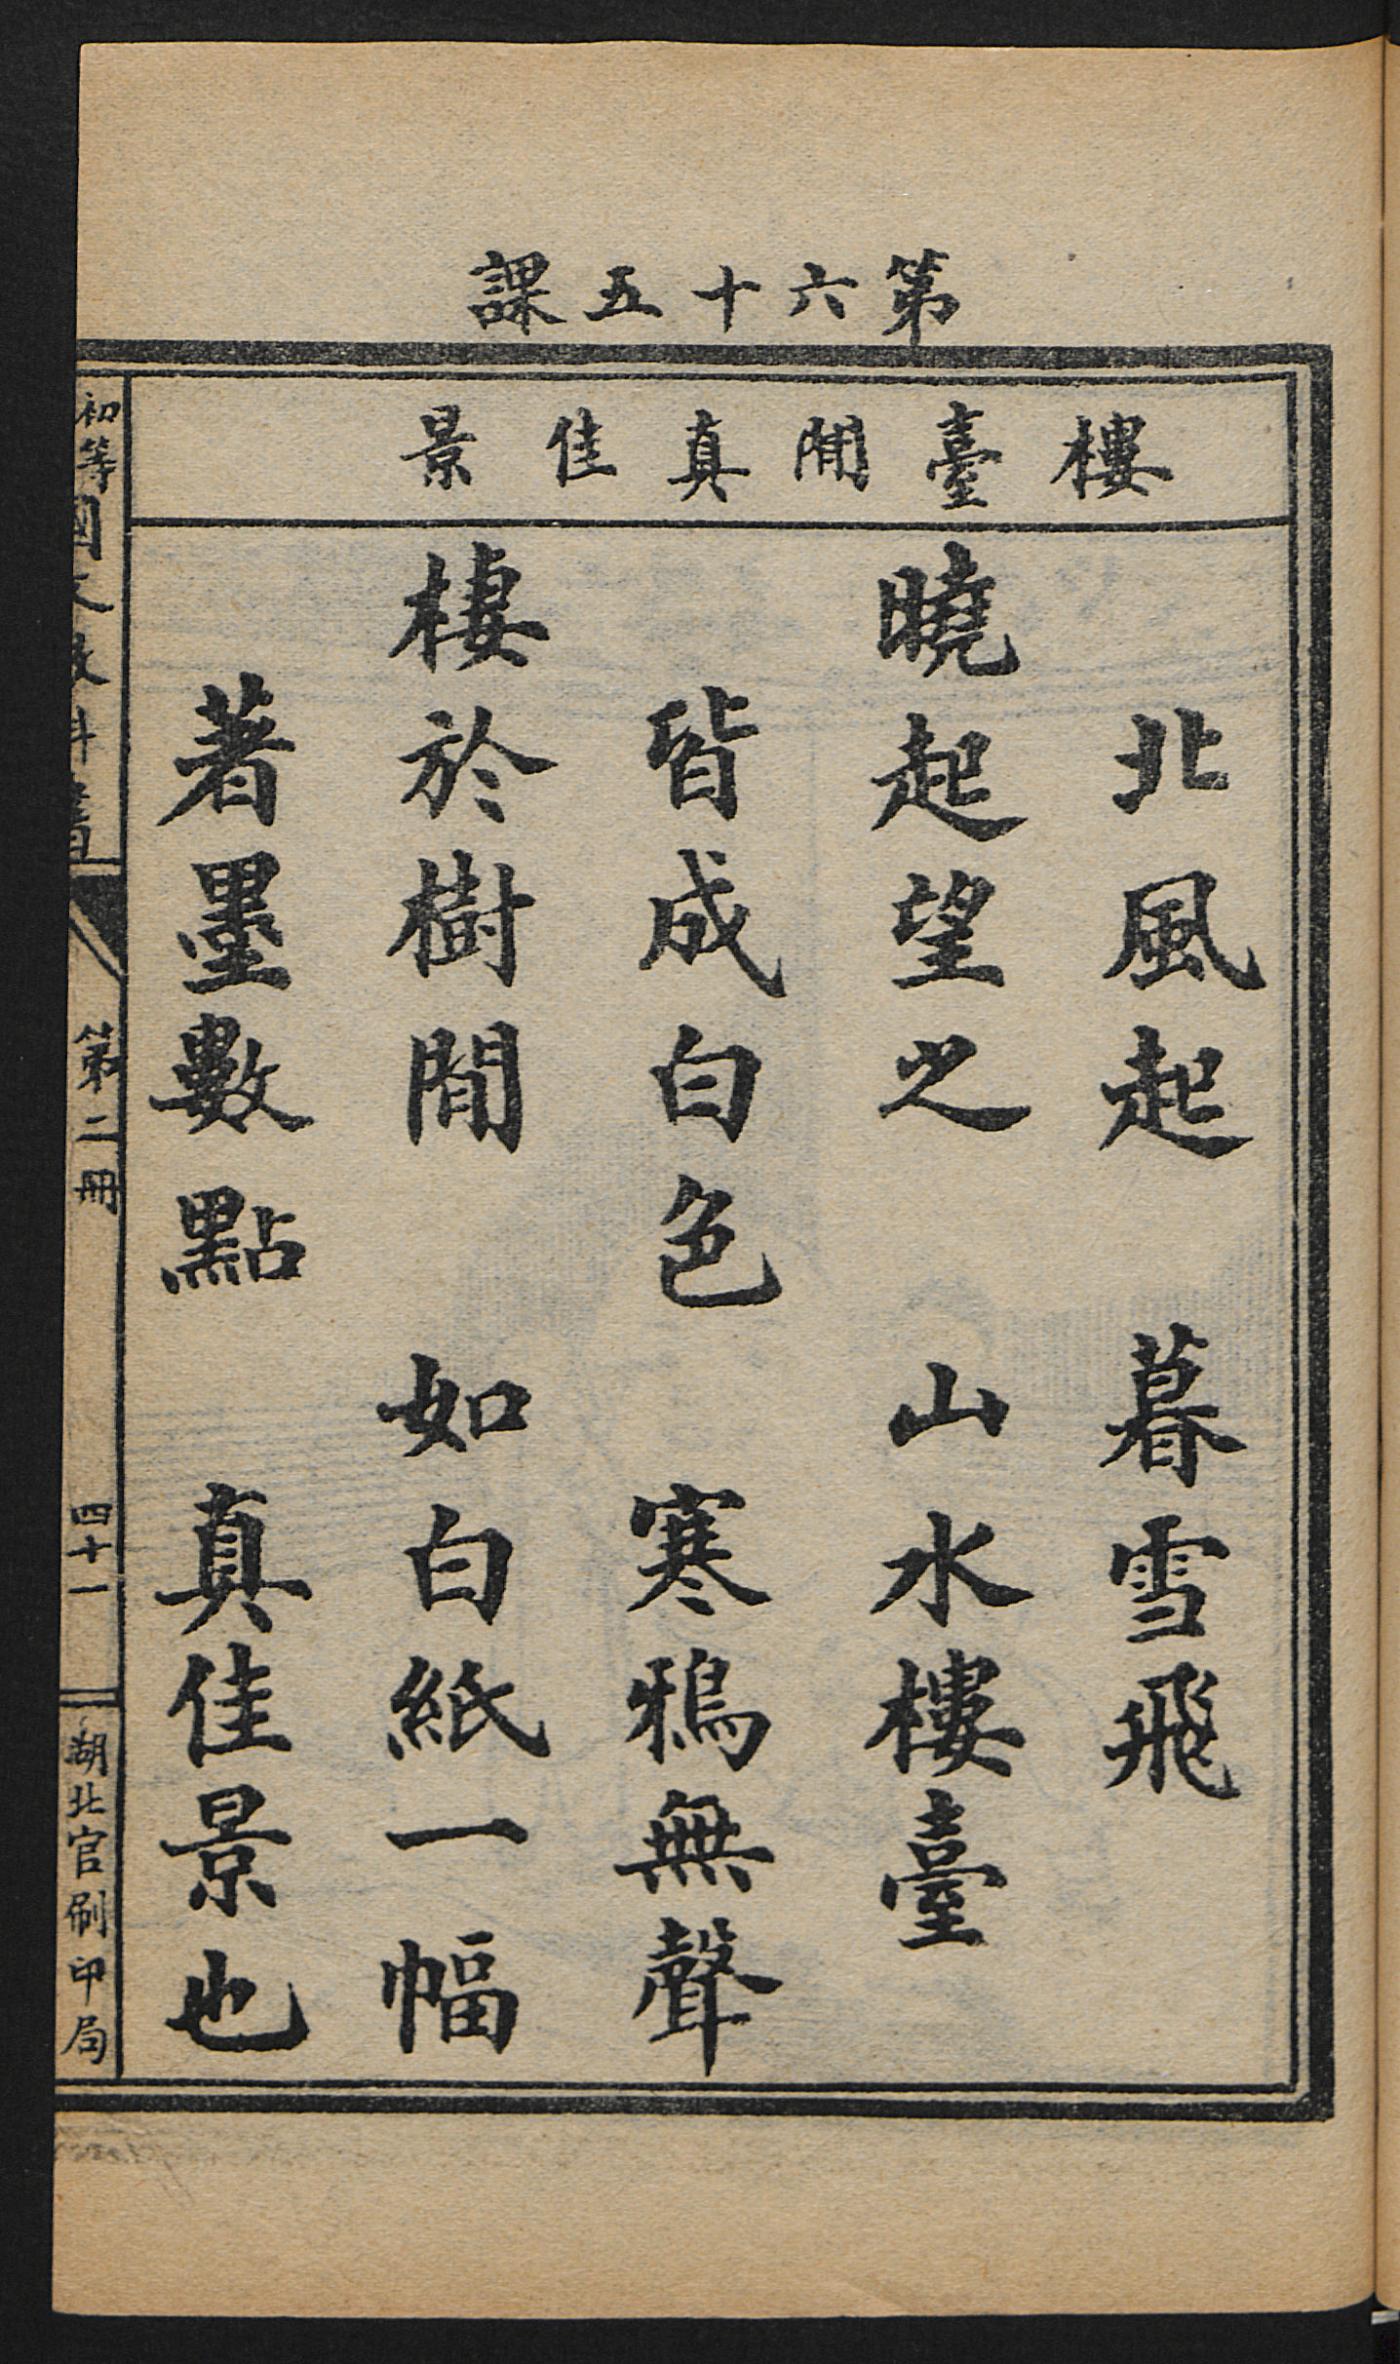 第六十五課
樓臺閒真佳景
北風起　暮雪飛
曉起望之　山水樓臺
皆成白色　寒鴉無聲
棲於樹閒　如白紙一幅
著墨數點　真佳景也
初等國文教科書
第二冊
四十一
湖北官刷印局